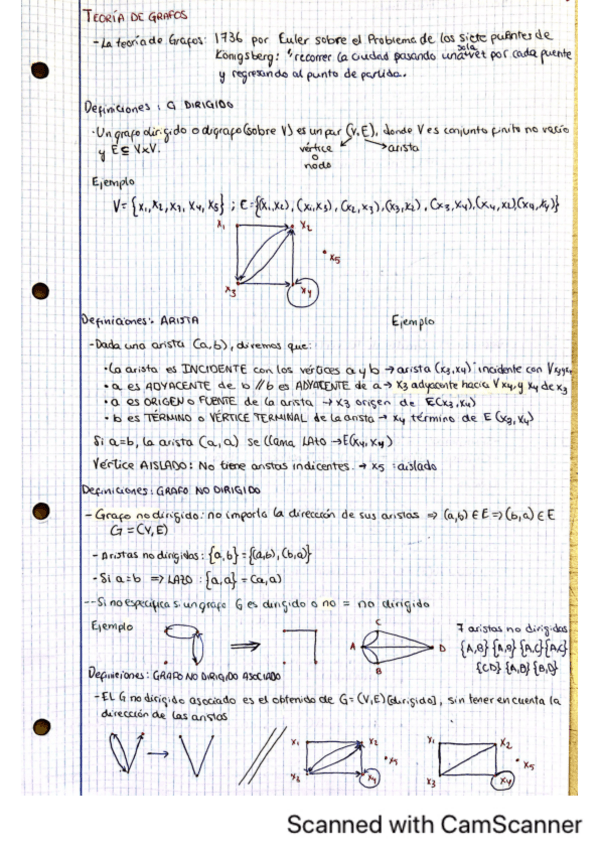 TEORÍA DE GRAFOS
- La teoría de Grafos: 1736 por Euler sobre el Problema de los siete puentes de
Königsberg: "recorrer la ciudad pasando una sola vez por cada puente
y regresando al punto de partida.
Definiciones: G DIRIGIDO
- Un grafo dirigido o digrafo (sobre V) es un par (V,E), donde V es conjunto finito no vacío
y E ⊆ V×V.
vértice
o
nodo
arista
Ejemplo
V = {x1, x2, x3, x4, x5} ; E = {(x1,x2), (x1,x3), (x2,x3), (x3,x2), (x3,x4), (x4,x2), (x4,x4)}
x1
x2
x5
x3
x4
Definiciones: ARISTA
Ejemplo
- Dada una arista (a,b), diremos que:
• La arista es INCIDENTE con los vértices a y b → arista (x3,x4): incidente con
• a es ADYACENTE de b // b es ADYACENTE de a → x3 adyacente hacia V x4, y x4 de x3
• a es ORIGEN o FUENTE de la arista → x3 origen de E(x3,x4)
• b es TÉRMINO o VÉRTICE TERMINAL de la arista → x4 término de E(x3,x4)
Si a=b, la arista (a,a) se llama LAZO → E(x4,x4)
Vértice AISLADO: No tiene aristas indicentes. → x5: aislado
Definiciones: GRAFO NO DIRIGIDO
- Grafo no dirigido: no importa la dirección de sus aristas ⇒ (a,b) ∈ E ⇒ (b,a) ∈ E
G = (V,E)
- Aristas no dirigidas: {a,b} = {(a,b), (b,a)}
- Si a=b ⇒ LAZO: {a,a} = (a,a)
-- Si no especifica si un grafo G es dirigido o no = no dirigido
Ejemplo
C
A
D
B
7 aristas no dirigidas
{A,B} {A,B} {A,C} {A,C}
{CD} {A,D} {B,D}
Definiciones: GRAFO NO DIRIGIDO ASOCIADO
- EL G no dirigido asociado es el obtenido de G=(V,E)[dirigido], sin tener en cuenta la
dirección de las aristas
x1
x2
x5
x3
x4
x1
x2
x5
x3
x4
Scanned with CamScanner